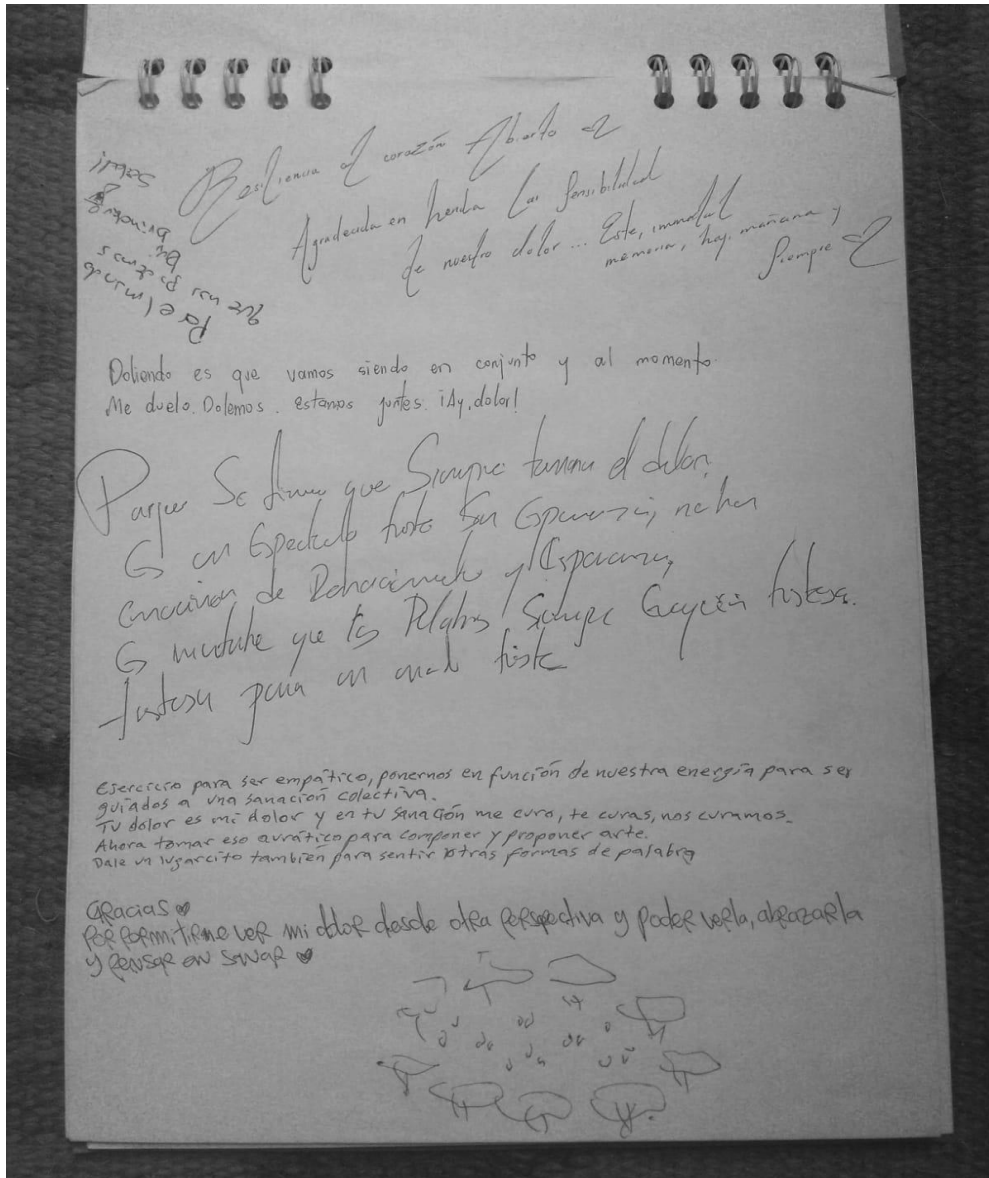 Resiliencia al corazón Abierto
Agradecida en la sensibilidad
de nuestro dolor... Este, inmortal
memoria, hoy, mañana y
siempre
Pa el mundo
que nos
Doliendo es que vamos siendo en conjunto y al momento.
Me duelo. Dolemos. estamos juntes. ¡Ay, dolor!
Porque Se que Siempre el dolor.
Es un triste Sin Esperanza, no hay
de Renacimiento y Esperanza,
Es que las Palabras Siempre tristeza.
tristeza para un triste
Ejercicio para ser empático, ponernos en función de nuestra energía para ser
guiados a una sanación colectiva.
Tu dolor es mi dolor y en tu sanación me curo, te curas, nos curamos.
Ahora tomar eso aurático para componer y proponer arte.
Dale un lugarcito también para sentir otras formas de palabra
GRacias
Por permitirme ver mi dolor desde otra perspectiva y poder verla, abrazarla
y pensar en sanar